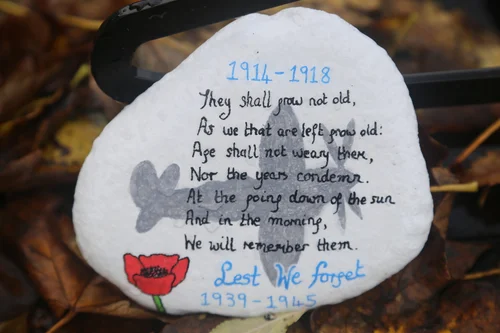 1914-1918
They shall grow not old,
As we that are left grow old:
Age shall not weary them,
Nor the years condemn.
At the going down of the sun
And in the morning,
We will remember them.
Lest We forget
1939-1945